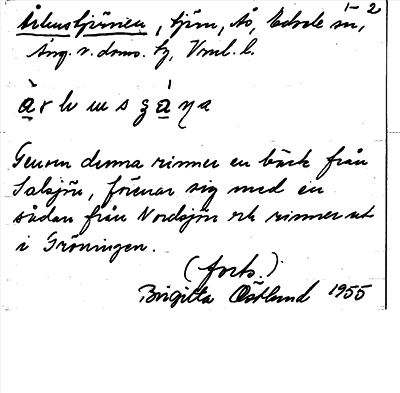 1-2
tjärn, Ås, Edsele sn,
Ång. v. doms. hg, Vnrl. l.
Genom denna rinner en bäck från
Salsjön, förenar sig med en
sådan från Nordsjön och rinner ut
i Gröningen.
(forts.)
Birgitta Östlund 1955